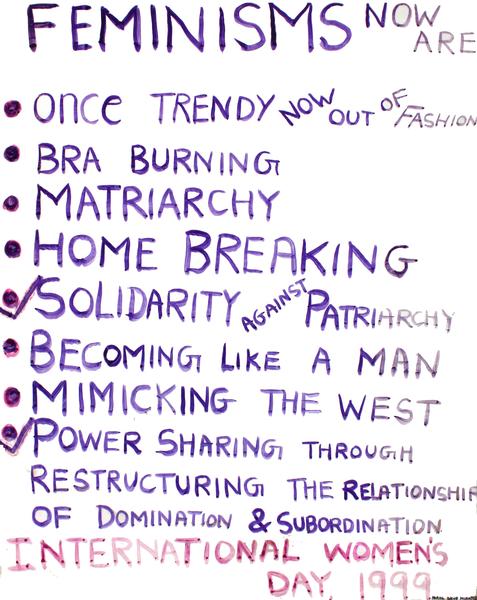 FEMINISMS NOW ARE
• Once TRENDY NOW OUT OF FASHION
• BRA BURNING
• MATRIARCHY
• HOME BREAKING
• SOLIDARITY AGAINST PATRIARCHY
• BECOMING LIKE A MAN
• MIMICKING THE WEST
• POWER SHARING THROUGH
RESTRUCTURING THE RELATIONSHIP
OF DOMINATION & SUBORDINATION
INTERNATIONAL WOMEN'S
DAY 1999